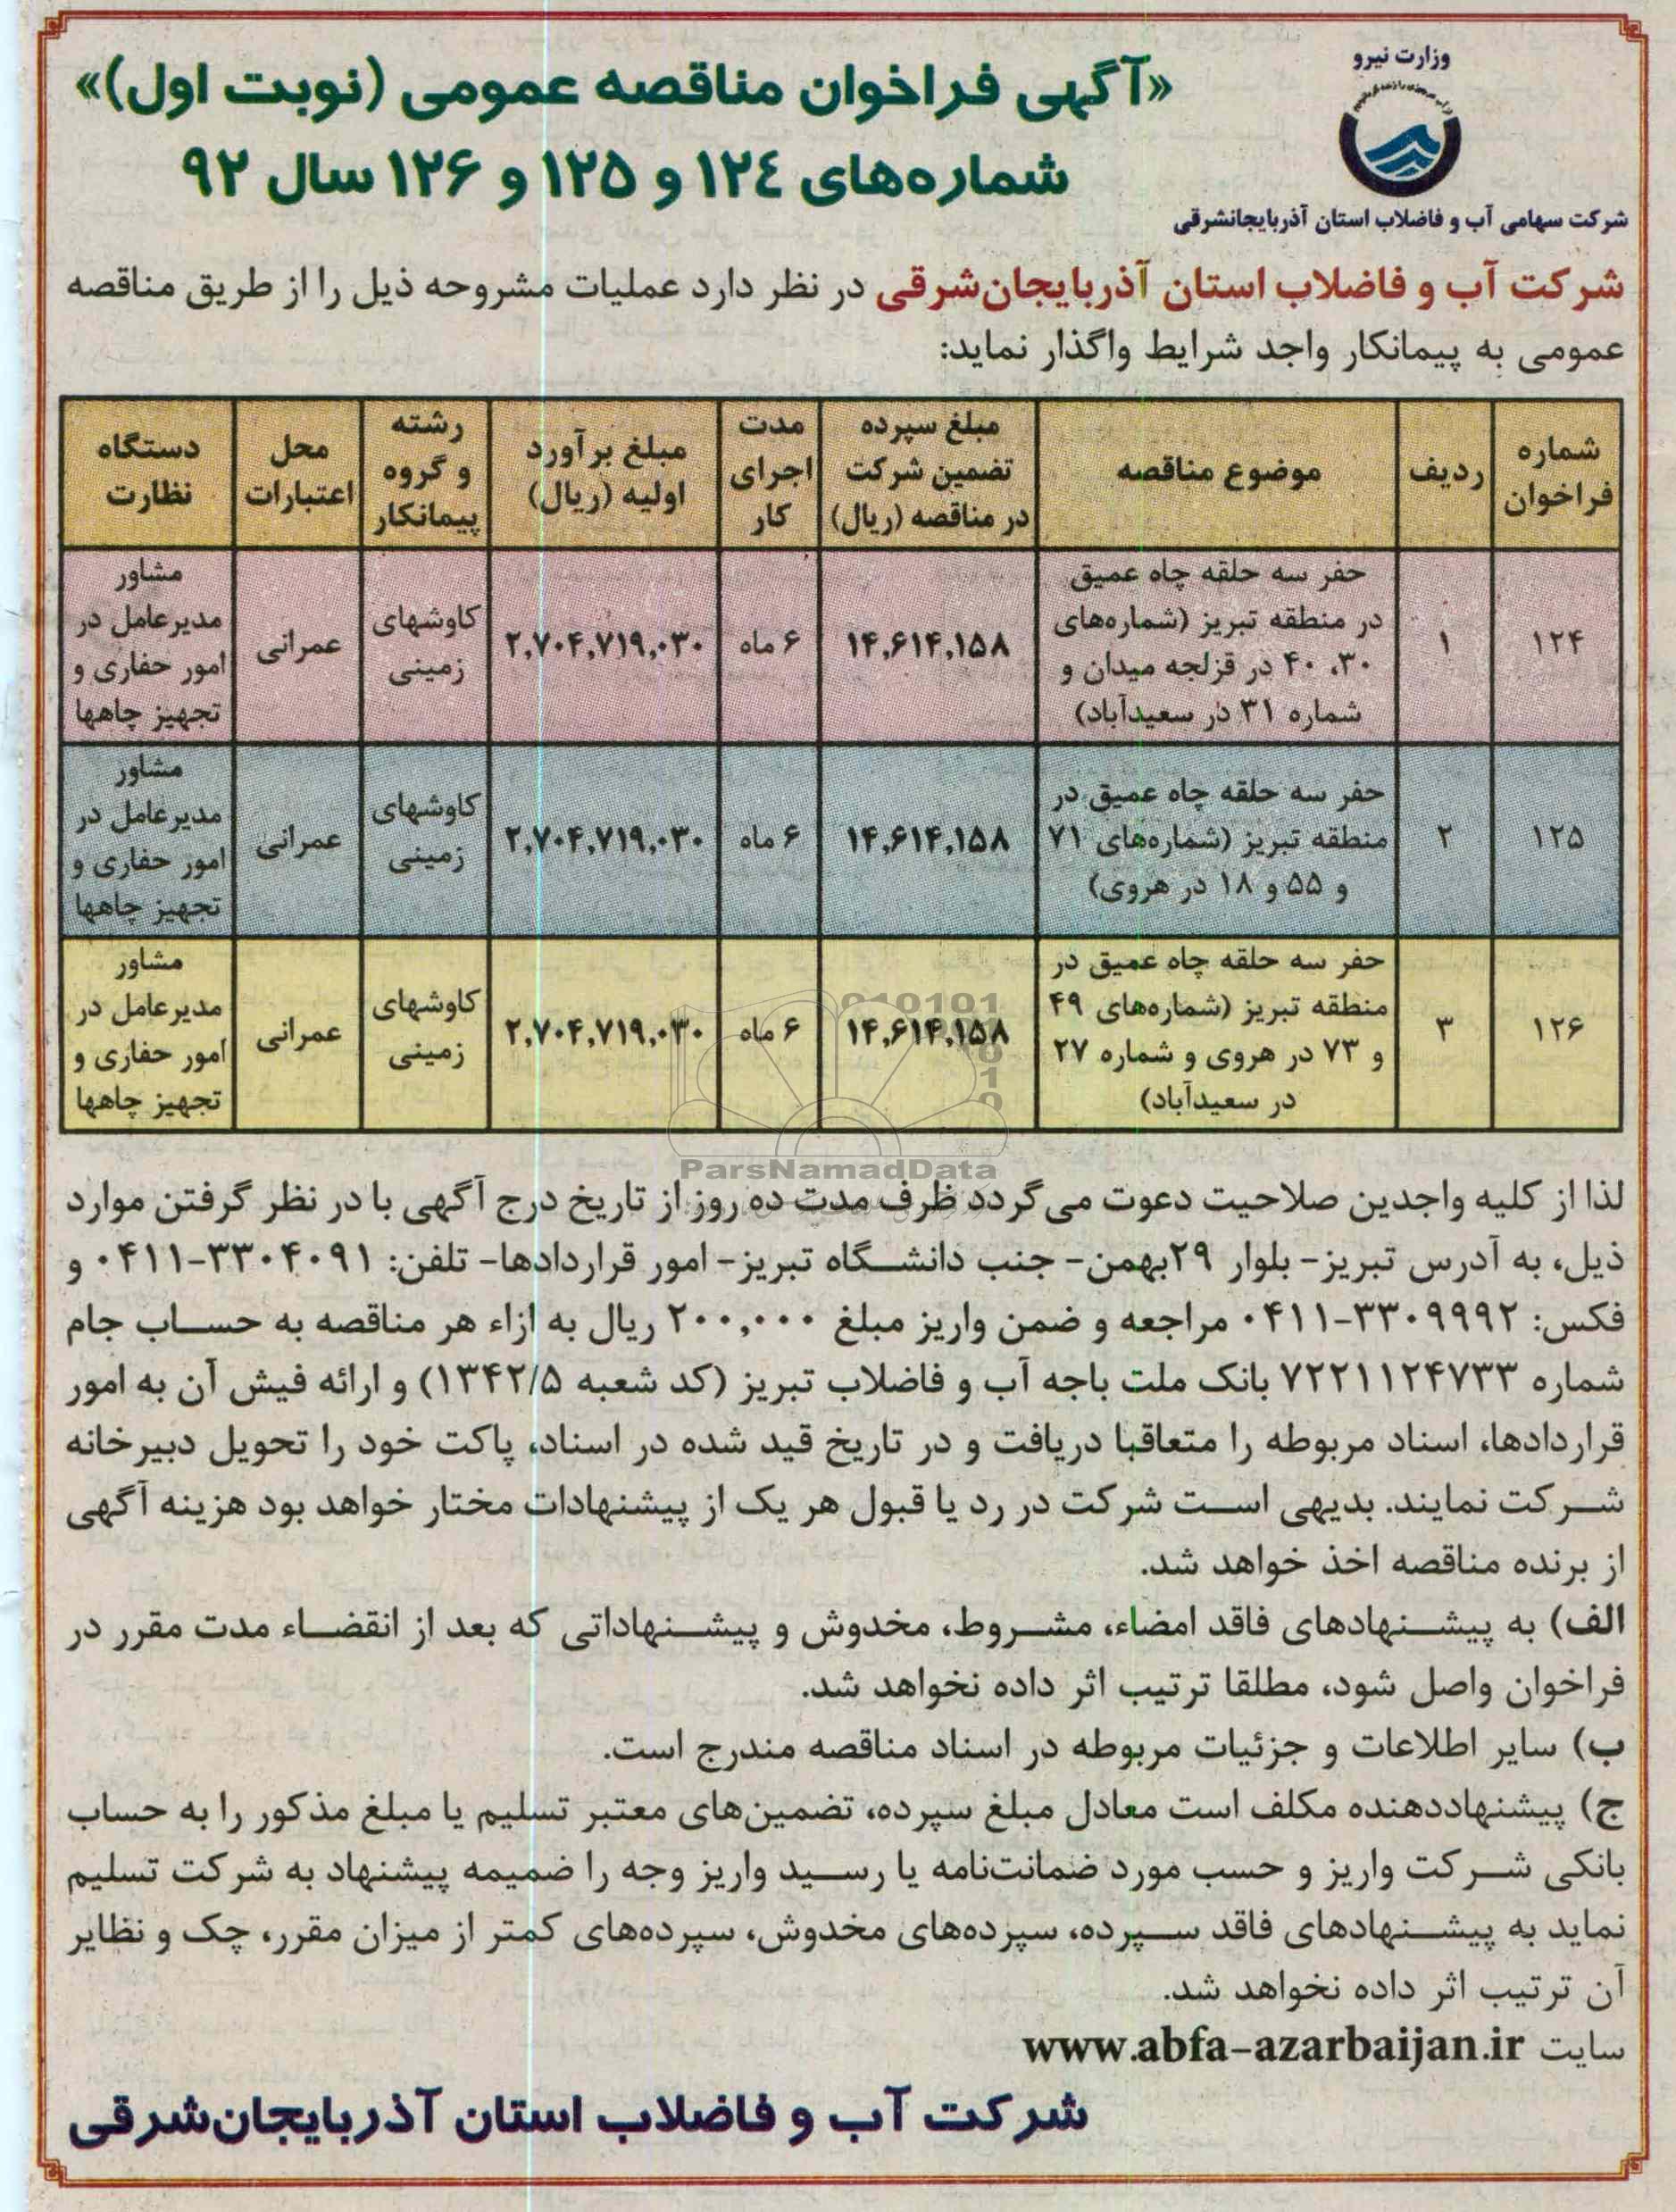 وزارت نیرو
شرکت سهامی آب و فاضلاب استان آذربایجانشرقی
«آگهی فراخوان مناقصه عمومی (نوبت اول)»
شماره‌های ۱۲۴ و ۱۲۵ و ۱۲۶ سال ۹۲
شرکت آب و فاضلاب استان آذربایجان‌شرقی در نظر دارد عملیات مشروحه ذیل را از طریق مناقصه
عمومی به پیمانکار واجد شرایط واگذار نماید:
شماره فراخوان | ردیف | موضوع مناقصه | مبلغ سپرده تضمین شرکت در مناقصه (ریال) | مدت اجرای کار | مبلغ برآورد اولیه (ریال) | رشته و گروه پیمانکار | محل اعتبارات | دستگاه نظارت
۱۲۴ | ۱ | حفر سه حلقه چاه عمیق در منطقه تبریز (شماره‌های ۳۰، ۴۰ در قزلجه میدان و شماره ۳۱ در سعیدآباد) | ۱۴,۶۱۴,۱۵۸ | ۶ ماه | ۲,۷۰۴,۷۱۹,۰۳۰ | کاوشهای زمینی | عمرانی | مشاور مدیرعامل در امور حفاری و تجهیز چاهها
۱۲۵ | ۲ | حفر سه حلقه چاه عمیق در منطقه تبریز (شماره‌های ۷۱ و ۵۵ و ۱۸ در هروی) | ۱۴,۶۱۴,۱۵۸ | ۶ ماه | ۲,۷۰۴,۷۱۹,۰۳۰ | کاوشهای زمینی | عمرانی | مشاور مدیرعامل در امور حفاری و تجهیز چاهها
۱۲۶ | ۳ | حفر سه حلقه چاه عمیق در منطقه تبریز (شماره‌های ۴۹ و ۷۳ در هروی و شماره ۲۷ در سعیدآباد) | ۱۴,۶۱۴,۱۵۸ | ۶ ماه | ۲,۷۰۴,۷۱۹,۰۳۰ | کاوشهای زمینی | عمرانی | مشاور مدیرعامل در امور حفاری و تجهیز چاهها
ParsNamadData
لذا از کلیه واجدین صلاحیت دعوت می‌گردد ظرف مدت ده روز از تاریخ درج آگهی با در نظر گرفتن موارد
ذیل، به آدرس تبریز- بلوار ۲۹بهمن- جنب دانشگاه تبریز- امور قراردادها- تلفن: ۳۳۰۴۰۹۱-۰۴۱۱ و
فکس: ۳۳۰۹۹۹۲-۰۴۱۱ مراجعه و ضمن واریز مبلغ ۲۰۰,۰۰۰ ریال به ازاء هر مناقصه به حساب جام
شماره ۷۲۲۱۱۲۴۷۳۳ بانک ملت باجه آب و فاضلاب تبریز (کد شعبه ۱۳۴۲/۵) و ارائه فیش آن به امور
قراردادها، اسناد مربوطه را متعاقبا دریافت و در تاریخ قید شده در اسناد، پاکت خود را تحویل دبیرخانه
شرکت نمایند. بدیهی است شرکت در رد یا قبول هر یک از پیشنهادات مختار خواهد بود هزینه آگهی
از برنده مناقصه اخذ خواهد شد.
الف) به پیشنهادهای فاقد امضاء، مشروط، مخدوش و پیشنهاداتی که بعد از انقضاء مدت مقرر در
فراخوان واصل شود، مطلقا ترتیب اثر داده نخواهد شد.
ب) سایر اطلاعات و جزئیات مربوطه در اسناد مناقصه مندرج است.
ج) پیشنهاددهنده مکلف است معادل مبلغ سپرده، تضمین‌های معتبر تسلیم یا مبلغ مذکور را به حساب
بانکی شرکت واریز و حسب مورد ضمانت‌نامه یا رسید واریز وجه را ضمیمه پیشنهاد به شرکت تسلیم
نماید به پیشنهادهای فاقد سپرده، سپرده‌های مخدوش، سپرده‌های کمتر از میزان مقرر، چک و نظایر
آن ترتیب اثر داده نخواهد شد.
سایت www.abfa-azarbaijan.ir
شرکت آب و فاضلاب استان آذربایجان‌شرقی